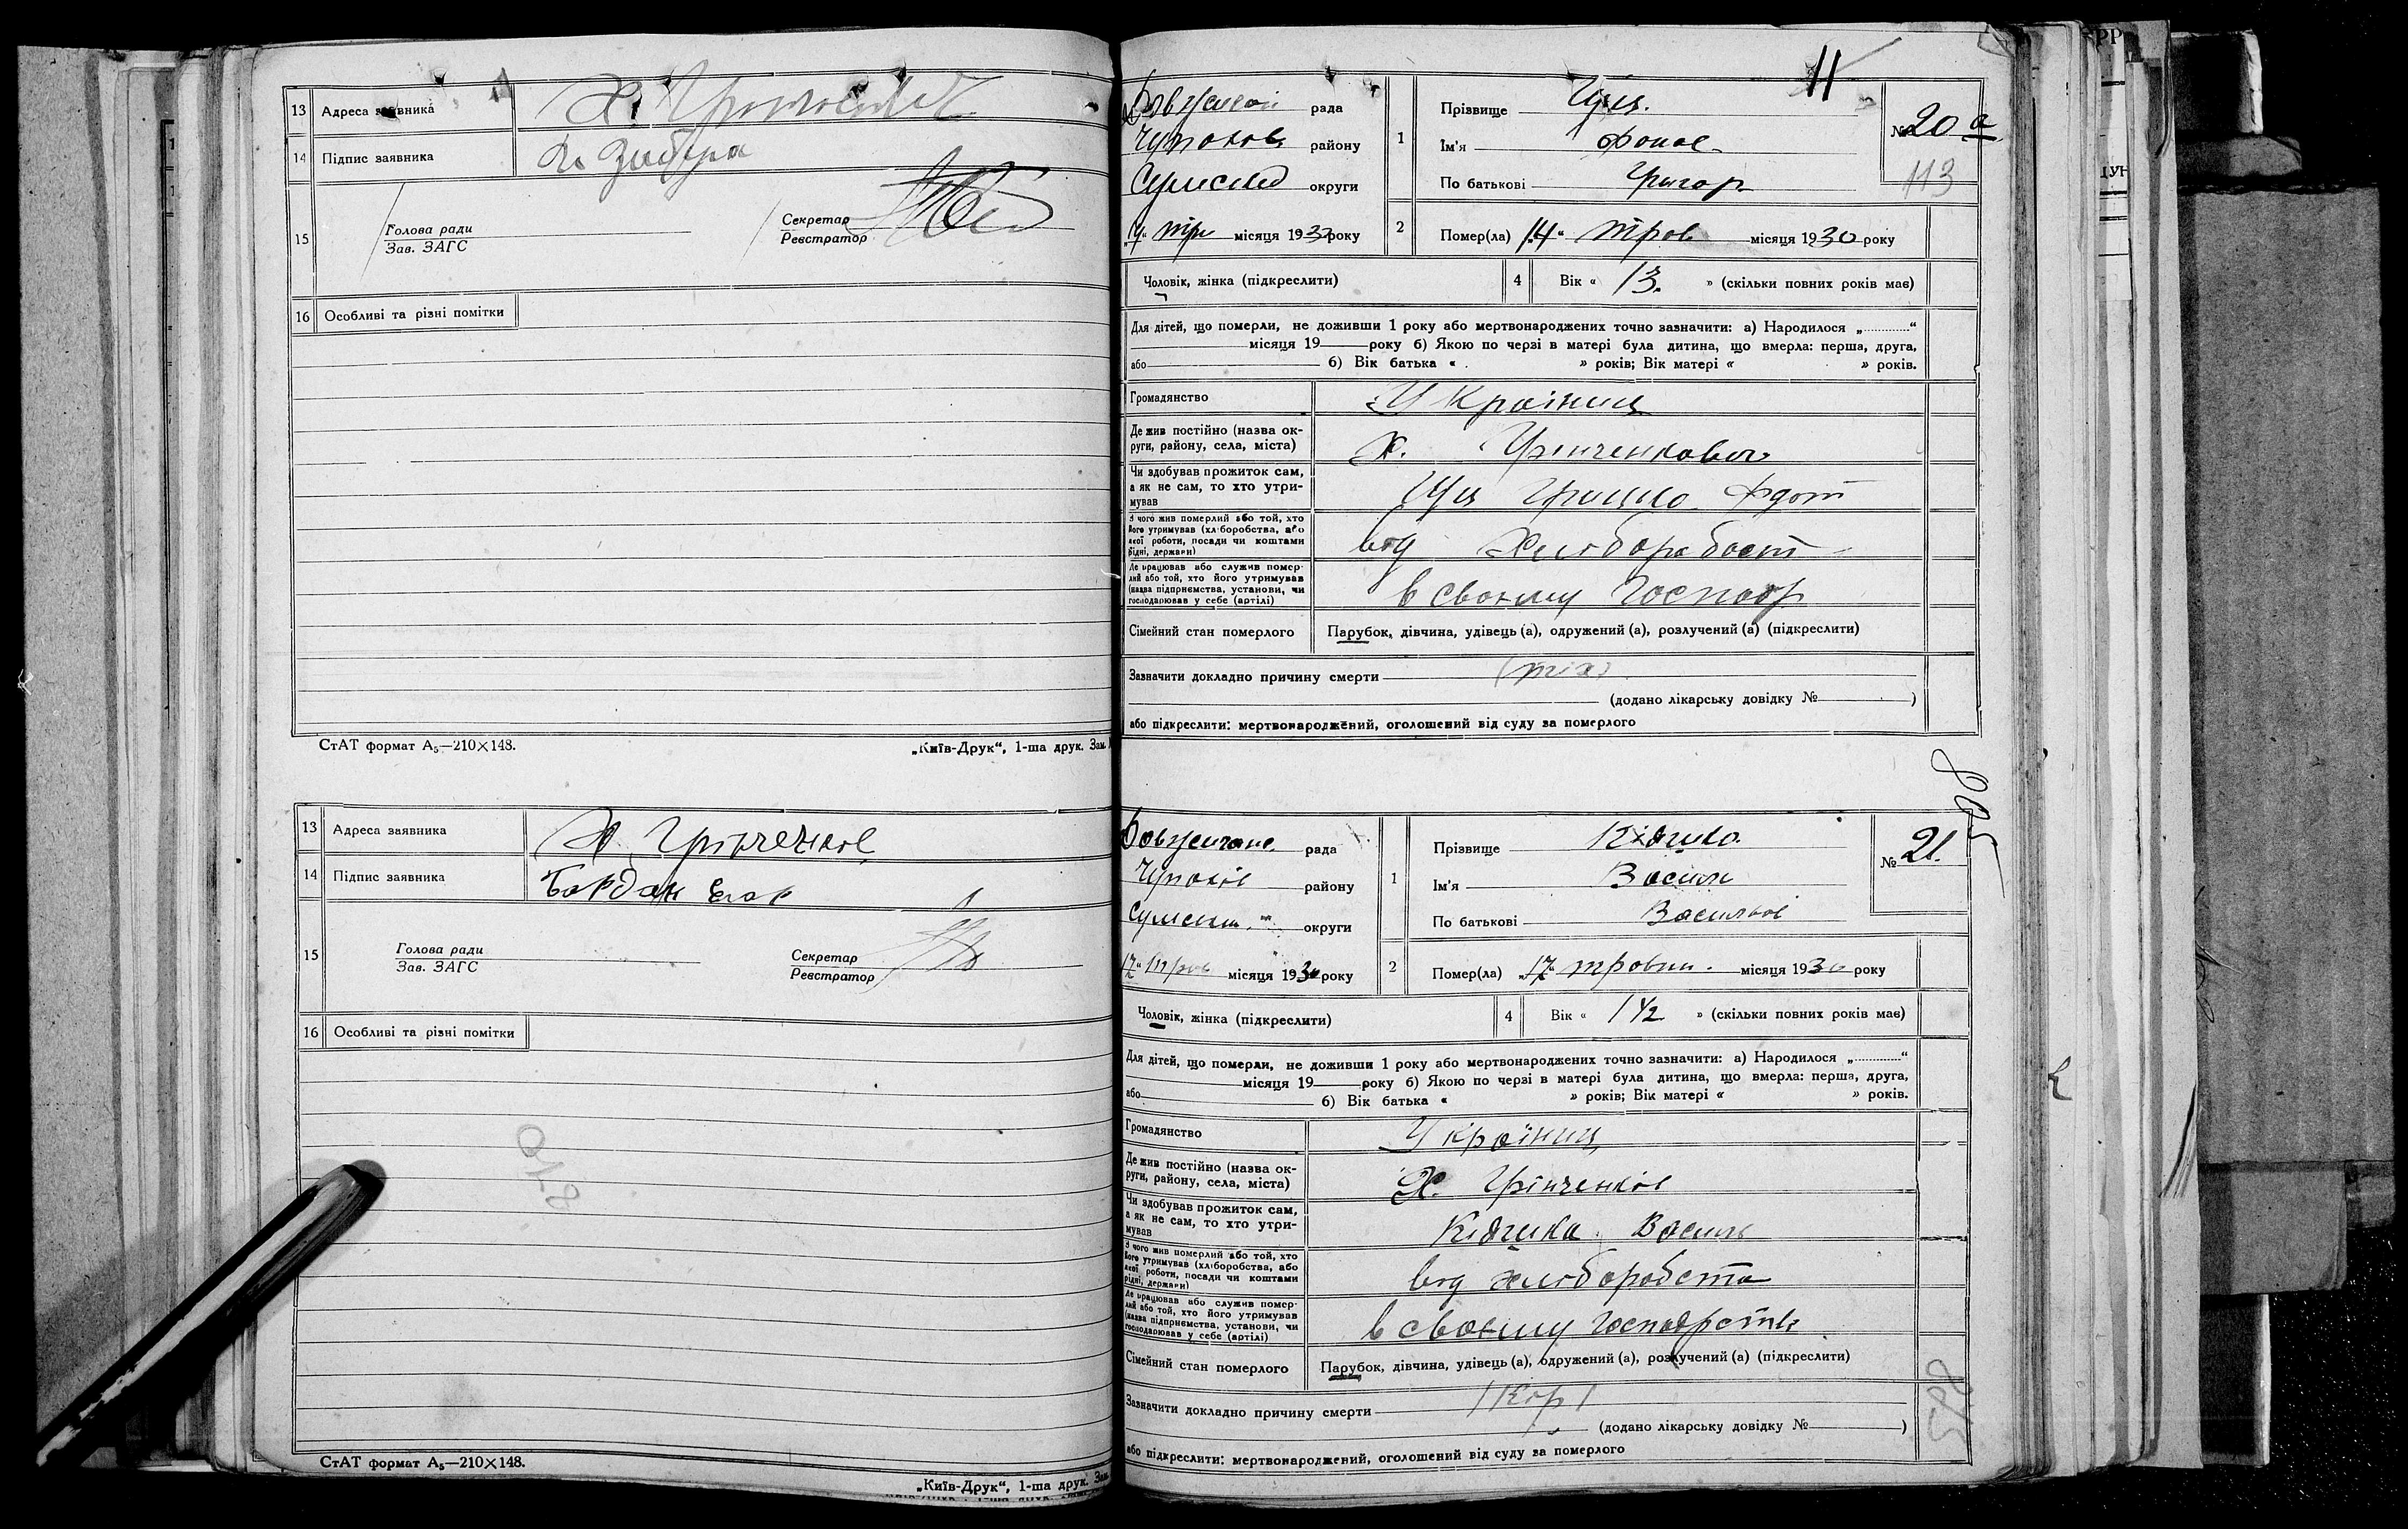 13 Адреса заявника Х.
14 Підпис заявника
15 Голова ради
Зав. ЗАГС
Секретар
Реєстратор
16 Особливі та різні помітки
СтАТ формат А₅—210×148.
„Київ-Друк“, 1-ша друк. Зам.
13 Адреса заявника Х. Грінченков
14 Підпис заявника
15 Голова ради
Зав. ЗАГС
Секретар
Реєстратор
16 Особливі та різні помітки
СтАТ формат А₅—210×148.
„Київ-Друк“, 1-ша друк. Зам.
11
рада
району
округи
місяця 1930 року
1 Прізвище
Ім'я
По батькові Григор
№ 20 а
113
2 Помер(ла) „14“ трав місяця 1930 року
Чоловік, жінка (підкреслити)
4 Вік « 13. » (скільки повних років має)
Для дітей, що померли, не доживши 1 року або мертвонароджених точно зазначити: а) Народилося „ “
місяця 19 року б) Якою по черзі в матері була дитина, що вмерла: перша, друга,
або б) Вік батька « » років; Вік матері « » років.
Громадянство Українец
Де жив постійно (назва ок-
руги, району, села, міста) Х.
Чи здобував прожиток сам,
а як не сам, то хто утри-
мував
З чого жив померлий або той, хто
його утримував (хліборобства, або
якої роботи, посади чи коштами
рідні, держави) вод
Де працював або служив помер-
лий або той, хто його утримував
(назва підприємства, установи, чи
господарював у себе (артілі) в своєму господр
Сімейний стан померлого Парубок, дівчина, удівець (а), одружений (а), розлучений (а) (підкреслити)
Зазначити докладно причину смерти
(додано лікарську довідку № )
або підкреслити: мертвонароджений, оголошений від суду за померлого
805
рада
району
округи
„17“ трав місяця 1930 року
1 Прізвище
Ім'я Васил
По батькові Васильов
№ 21.
2 Помер(ла) „17“ травн. місяця 1930 року
Чоловік, жінка (підкреслити)
4 Вік « 1 1/2 » (скільки повних років має)
Для дітей, що померли, не доживши 1 року або мертвонароджених точно зазначити: а) Народилося „ “
місяця 19 року б) Якою по черзі в матері була дитина, що вмерла: перша, друга,
або б) Вік батька « » років; Вік матері « » років.
Громадянство Українец
Де жив постійно (назва ок-
руги, району, села, міста) Х. Грінченків
Чи здобував прожиток сам,
а як не сам, то хто утри-
мував Васил
З чого жив померлий або той, хто
його утримував (хліборобства, або
якої роботи, посади чи коштами
рідні, держави) вод хлеборобста
Де працював або служив помер-
лий або той, хто його утримував
(назва підприємства, установи, чи
господарював у себе (артілі) в своєму господрстві
Сімейний стан померлого Парубок, дівчина, удівець (а), одружений (а), розлучений (а) (підкреслити)
Зазначити докладно причину смерти (Кор)
(додано лікарську довідку № )
або підкреслити: мертвонароджений, оголошений від суду за померлого
805